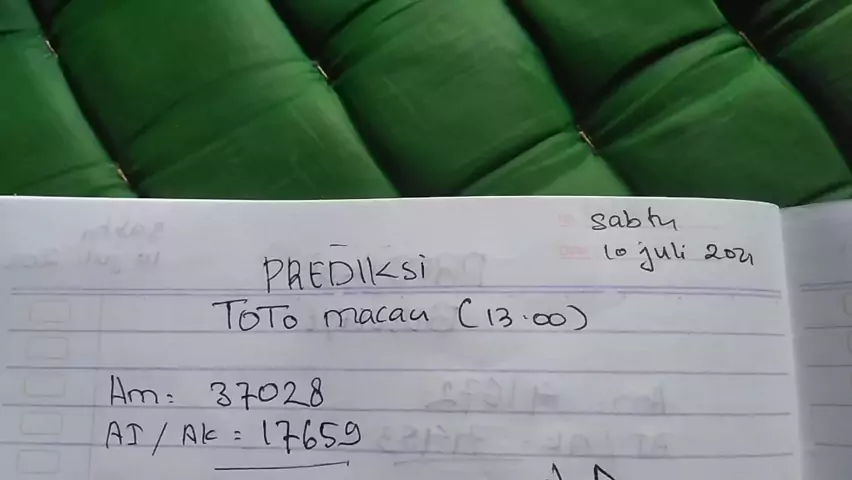 Sabtu
10 juli 2021
PREDIKSi
TOTO macau (13.00)
Am: 37028
AI / AK = 17659